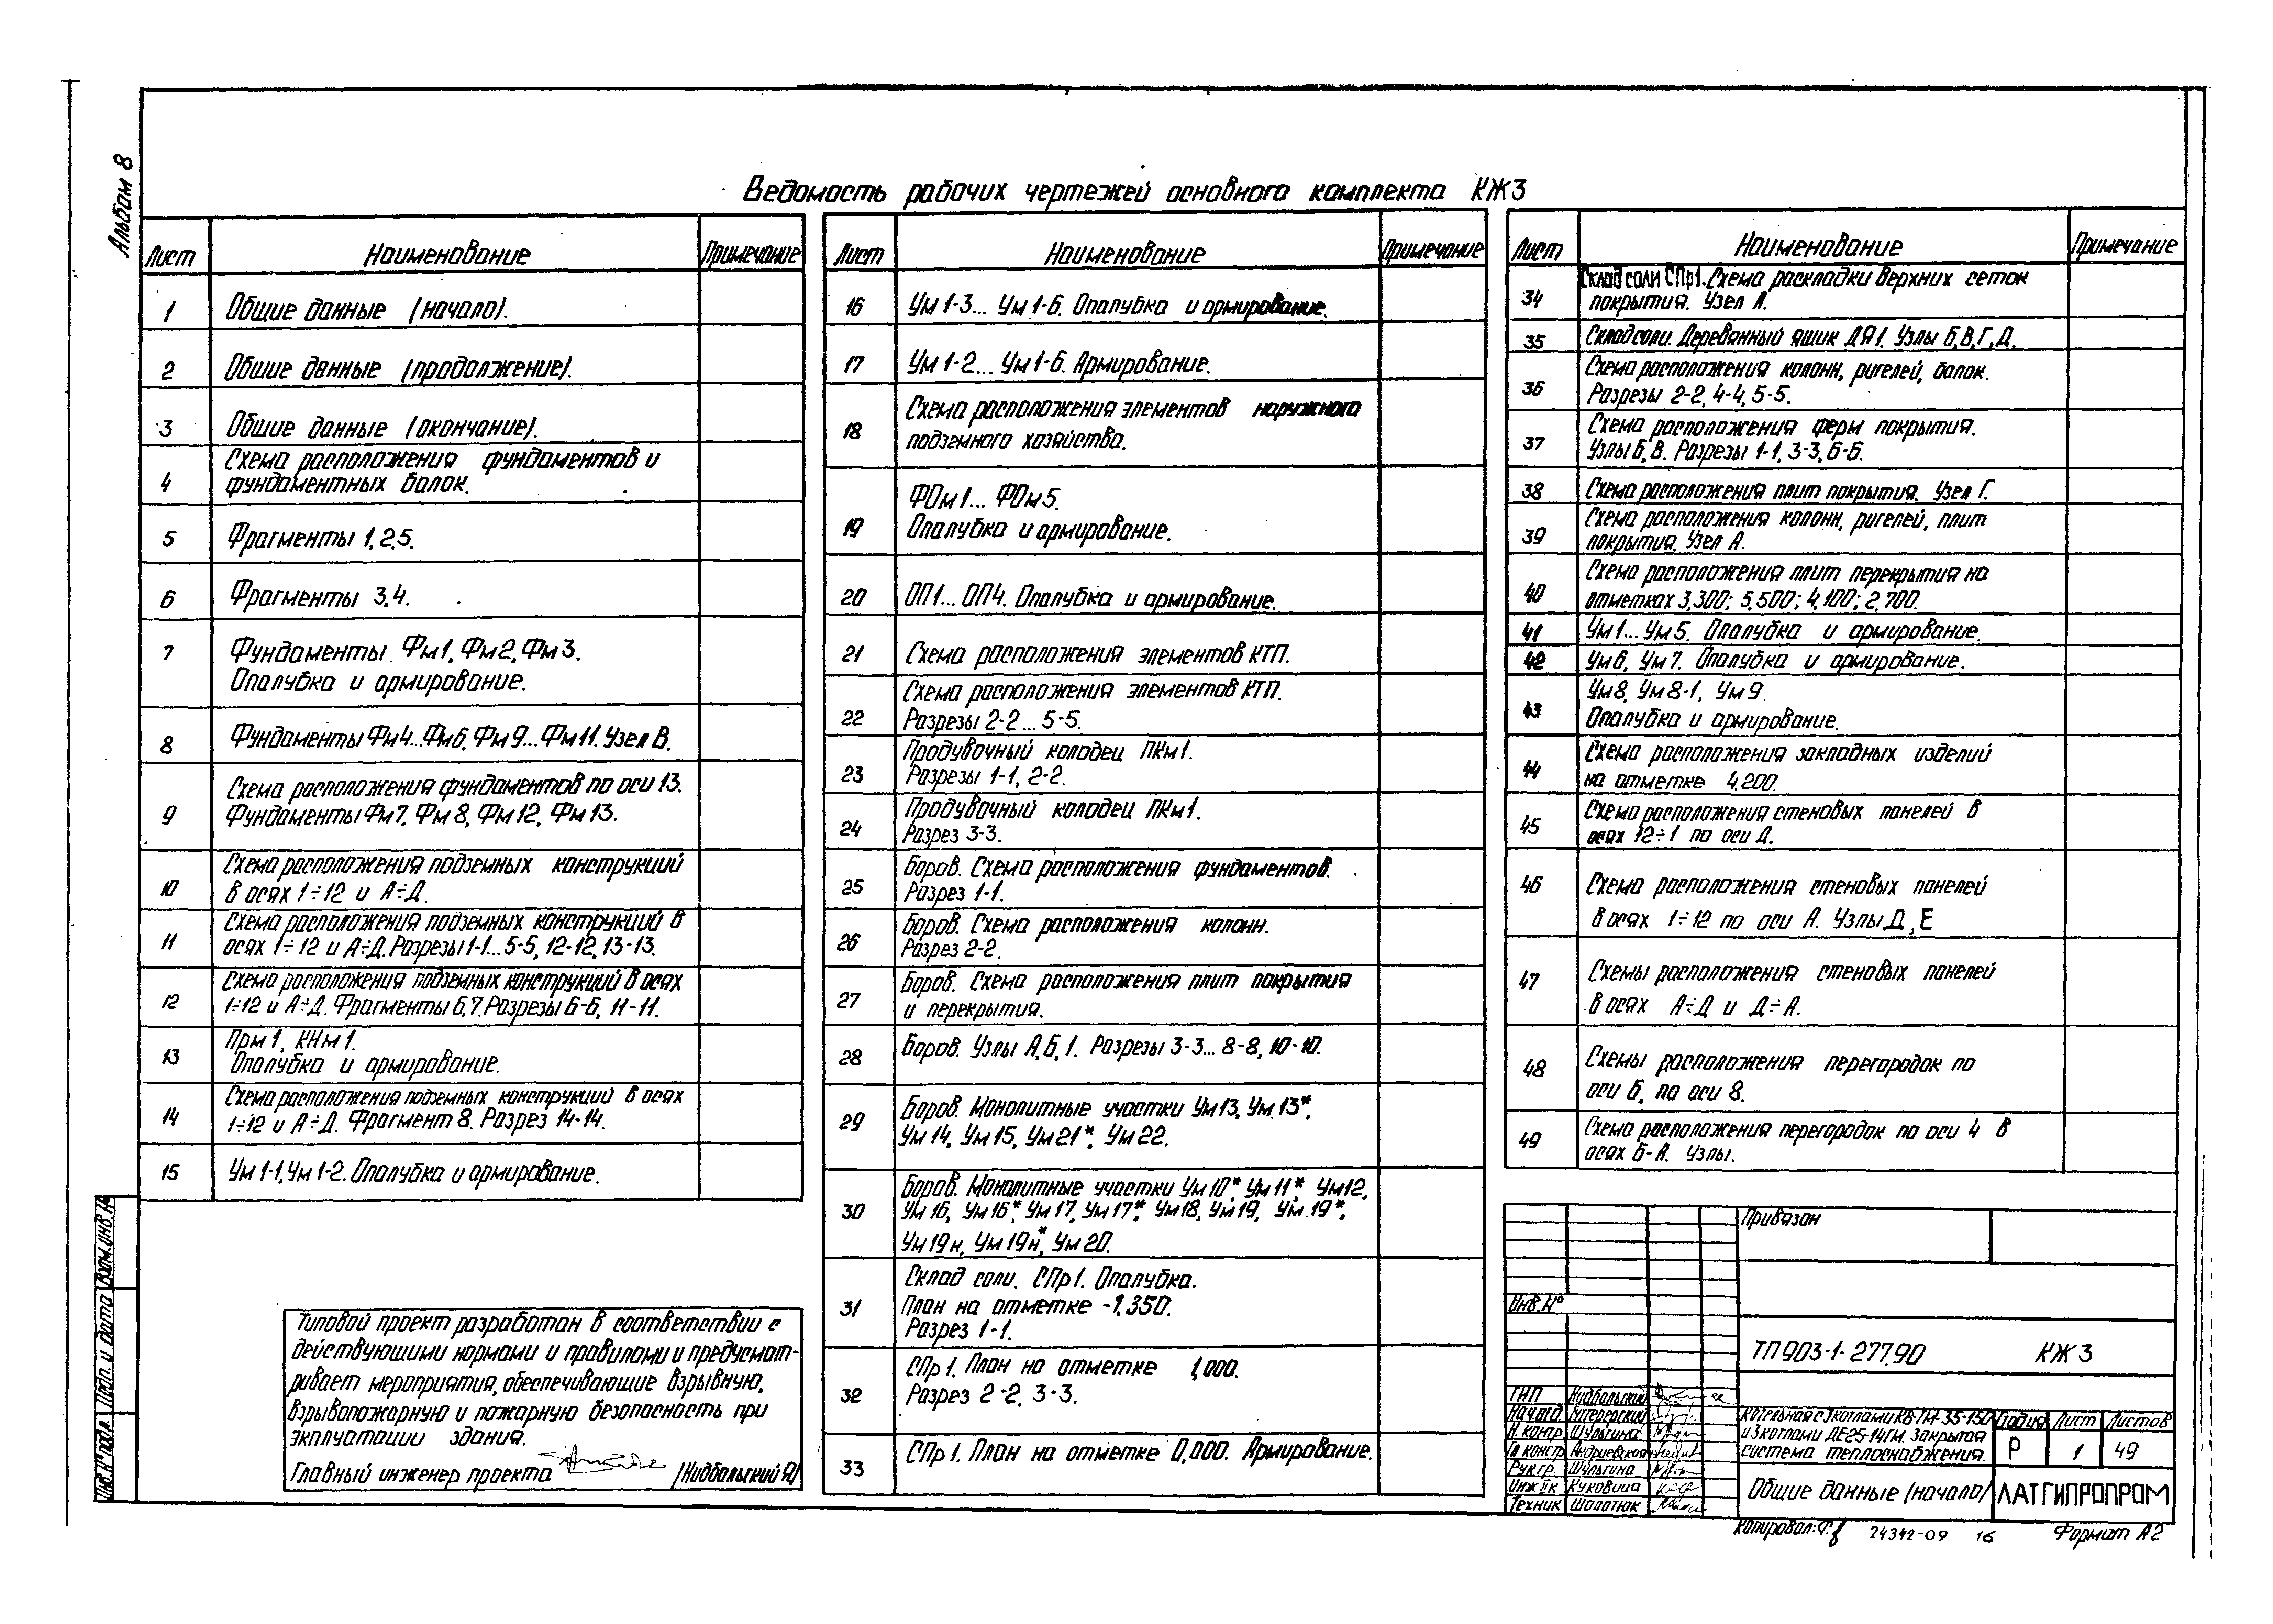 Альбом 8
Ведомость рабочих чертежей основного комплекта КЖ3
Лист Наименование Примечание
1 Общие данные (начало).
2 Общие данные (продолжение).
3 Общие данные (окончание).
4 Схема расположения фундаментов и
фундаментных балок.
5 Фрагменты 1, 2, 5.
6 Фрагменты 3, 4.
7 Фундаменты Фм1, Фм2, Фм3.
Опалубка и армирование.
8 Фундаменты Фм4...Фм6, Фм9...Фм11. Узел В.
9 Схема расположения фундаментов по оси 13.
Фундаменты Фм7, Фм8, Фм12, Фм13.
10 Схема расположения подземных конструкций
в осях 1÷12 и А÷Д.
11 Схема расположения подземных конструкций в
осях 1÷12 и А÷Д. Разрезы 1-1...5-5, 12-12, 13-13.
12 Схема расположения подземных конструкций в осях
1÷12 и А÷Д. Фрагменты 6, 7. Разрезы 6-6, 11-11.
13 Прм1, КНм1.
Опалубка и армирование.
14 Схема расположения подземных конструкций в осях
1÷12 и А÷Д. Фрагмент 8. Разрез 14-14.
15 Ум1-1, Ум1-2. Опалубка и армирование.
Лист Наименование Примечание
16 Ум1-3... Ум1-6. Опалубка и армирование.
17 Ум1-2... Ум1-6. Армирование.
18 Схема расположения элементов наружного
подземного хозяйства.
19 ФОм1... ФОм5.
Опалубка и армирование.
20 ОП1... ОП4. Опалубка и армирование.
21 Схема расположения элементов КТП.
22 Схема расположения элементов КТП.
Разрезы 2-2...5-5.
23 Продувочный колодец ПКм1.
Разрезы 1-1, 2-2.
24 Продувочный колодец ПКм1.
Разрез 3-3.
25 Боров. Схема расположения фундаментов.
Разрез 1-1.
26 Боров. Схема расположения колонн.
Разрез 2-2.
27 Боров. Схема расположения плит покрытия
и перекрытия.
28 Боров. Узлы А, Б, 1. Разрезы 3-3... 8-8, 10-10.
29 Боров. Монолитные участки Ум13, Ум13*,
Ум14, Ум15, Ум21*, Ум22.
30 Боров. Монолитные участки Ум10*, Ум11*, Ум12,
Ум16, Ум16*, Ум17, Ум17*, Ум18, Ум19, Ум19*,
Ум19н, Ум19н*, Ум20.
31 Склад соли. СПр1. Опалубка.
План на отметке -1,350.
Разрез 1-1.
32 СПр1. План на отметке 1,000.
Разрез 2-2, 3-3.
33 СПр1. План на отметке 0,000. Армирование.
Лист Наименование Примечание
34 Склад соли СПр1. Схема раскладки верхних сеток
покрытия. Узел А.
35 Склад соли. Деревянный ящик ДЯ1. Узлы Б, В, Г, Д.
36 Схема расположения колонн, ригелей, балок.
Разрезы 2-2, 4-4, 5-5.
37 Схема расположения ферм покрытия.
Узлы Б, В. Разрезы 1-1, 3-3, 6-6.
38 Схема расположения плит покрытия. Узел Г.
39 Схема расположения колонн, ригелей, плит
покрытия. Узел А.
40 Схема расположения плит перекрытия на
отметках 3,300; 5,500; 4,100; 2,700.
41 Ум1... Ум5. Опалубка и армирование.
42 Ум6, Ум7. Опалубка и армирование.
43 Ум8, Ум8-1, Ум9.
Опалубка и армирование.
44 Схема расположения закладных изделий
на отметке 4,200.
45 Схема расположения стеновых панелей в
осях 12÷1 по оси Д.
46 Схема расположения стеновых панелей
в осях 1÷12 по оси А. Узлы Д, Е
47 Схемы расположения стеновых панелей
в осях А÷Д и Д÷А.
48 Схемы расположения перегородок по
оси Б, по оси 8.
49 Схема расположения перегородок по оси 4 в
осях Б-А. Узлы.
Типовой проект разработан в соответствии с
действующими нормами и правилами и предусмат-
ривает мероприятия, обеспечивающие взрывную,
взрывопожарную и пожарную безопасность при
эксплуатации здания.
Главный инженер проекта /Нидбальский Я/
Взам.инв.№
Подп. и дата
Инв.№ подл.
Привязан
Инв.№
ТП 903-1-277.90 КЖ3
ГИП Нидбальский
Нач.отд.
Н. контр Шульгина
Гл констр Андриевская
Рук.гр. Шульгина
Инж II к Куковица
Техник Шолотюк
Котельная с 3 котлами КВ-ГМ-35-150
и 3 котлами ДЕ25-14ГМ. Закрытая
система теплоснабжения.
Стадия Лист Листов
Р 1 49
Общие данные (начало)
ЛАТГИПРОПРОМ
Копировал: 24342-09 16 Формат А2